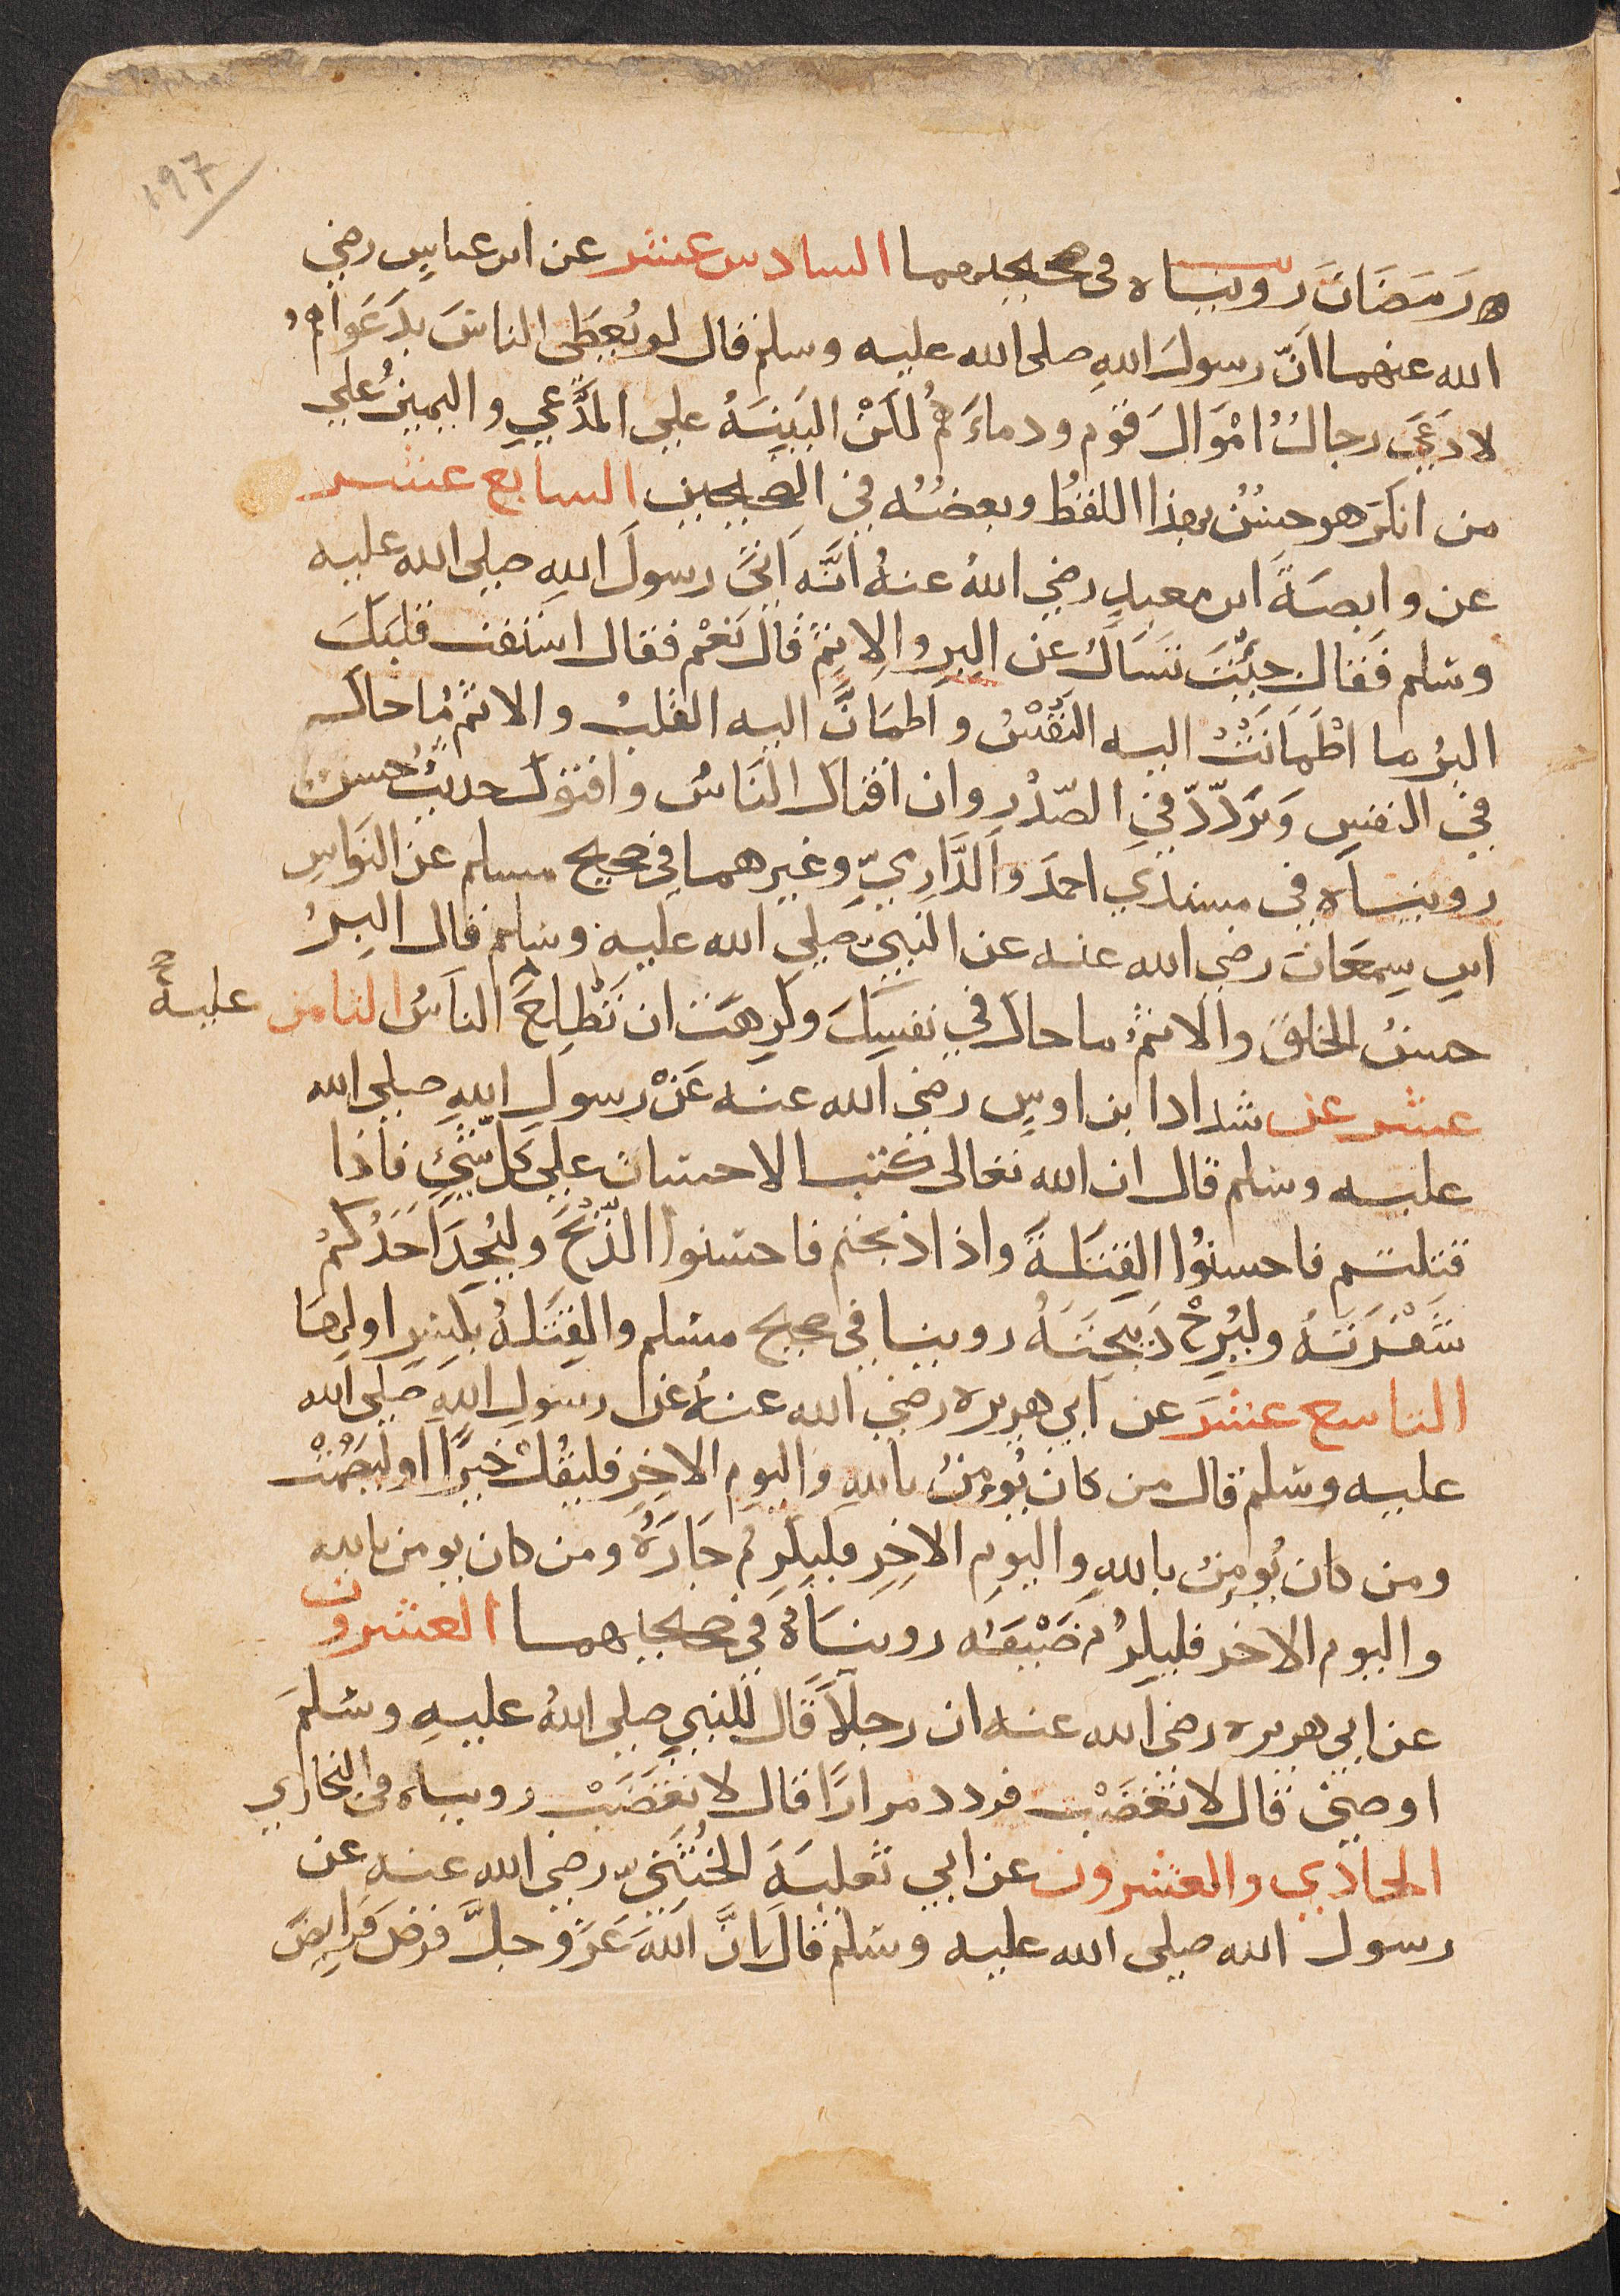 ١٩٧
رَمَضَانَ رويناه فى صحيحيهما السادس عشر عن ابن عباسٍ رضي
الله عنهما انّ رسولَ اللهِ صلى الله عليه وسلم قال لو يُعطَى الناسَ بدَعَواهُم
لادَّعَى رجالٌ امْوَالَ قوم ودماءَهُم لكنْ البَيِنَةُ على المدَّعِي واليمينُ علي
من انكرَ هو حسَنٌ بهذا اللفظ وبعضُه في الصحيحين السابع عشر
عن وابصَةَ ابن معبدٍ رضي اللهُ عنهُ أنَّه أتَى رسولَ اللهِ صلى الله عليه
وسلم فَقال جئتَ تسَالُ عن البِرِ والاِثمِ قالَ نَعَمْ فقال استفت قلبَكَ
البرُ ما اطْمَانَتْ اليه النَفْسُ واطمَانَّ اليه القلبُ والاثمُ مَا حاكَ
في النفسِ وَتردّدَ في الصّدْرِ وان افتاك النَاسُ وافتوك حديثٌ حسن
رويناه في مسندَي احمدَ والدَّارِميِّ وغيرهما في صحيح مسلم عن النوَاسِ
ابنِ سِمعَانَ رضي الله عنه عن النبيّ صلى الله عليه وسلم قال البِرُ
حسنُ الخلقِ والاثمُ ما حاك في نفسِكَ وكرِهتَ ان يَطَّلِعَ الناسُ الثامن عليهِ
عشر عن شداد ابن اوسٍ رضي الله عنه عَنْ رسول اللهِ صلى الله
عليه وسلم قال ان الله تعالى كتب الاحسان على كلّ شَيْءٍ فاذا
قتلتم فاحسنُوا القِتَلةَ واذا ذبحتم فاحسنوا الذّبْحَ وليُحِدَ احَدُكُمْ
شَفْرَتَهُ وليُرِحْ ذَبيحَتَهُ روينا في صحيح مسلم والقِتلهُ بكسرِ اولِها
التاسع عشرَ عن ابي هريره رضي الله عنهُ عن رسولِ اللهِ صلى الله
عليه وسلم قال من كان يُومِنُ باللهِ واليومِ الاخِرِ فليقُلْ خيرًا او ليَصْمُتْ
ومن كان يُومِنُ باللهِ واليومِ الاخِرِ فليكرِم جَارَهُ ومن كان يومن بالله
واليوم الاخر فليكرم ضَيْفَه رويناهُ في صحيحيهما العشرون
عن ابي هريره رضي الله عنه ان رجلًا قال للنبي صلى اللهُ عليهِ وسلمَ
اوصِني قال لا تغضَبْ فردد مرارًا قال لا تغضَبْ رويناه في البخاري
الحادي والعشرون عن ابي ثعلبَةَ الخُشَنيّ رضي الله عنه عن
رسول الله صلى الله عليه وسلم قال انَّ اللهَ عَزَ وجلَّ فرضَ فَرايضَ